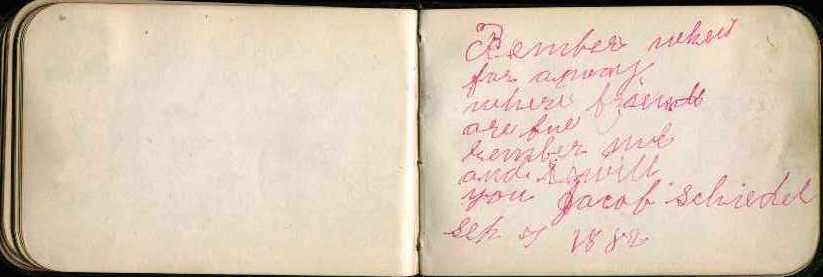 Rember when
far away
where friends
are few
rember me
and I will
you Jacob Schiedel
Sep 1882